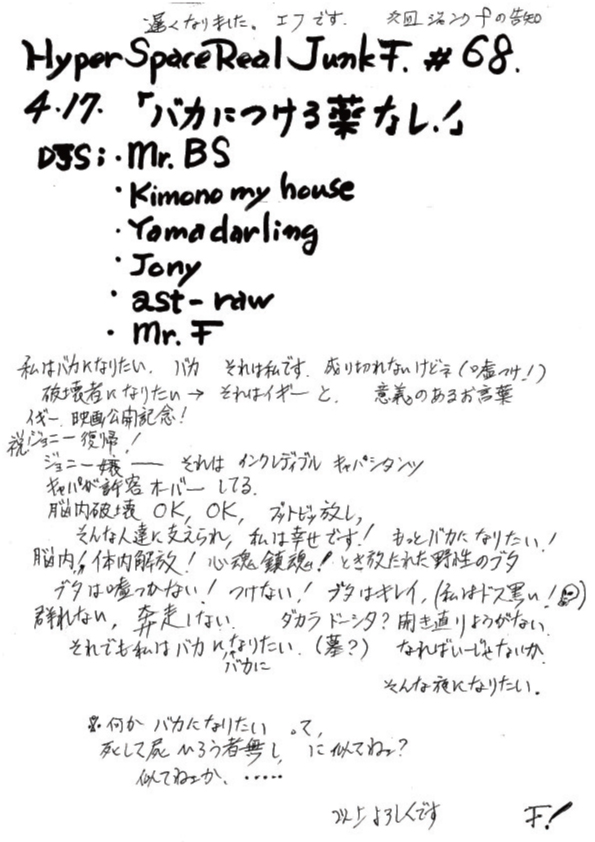 遅くなりました。エフです. 次回ジャンクFの告知
Hyper Space Real Junk F. #68.
4.17. 「バカにつける薬なし.!」
DJS: ・Mr. BS
・Kimono my house
・Yama darling
・Jony
・ast-raw
・Mr. F
私はバカになりたい. バカ それは私です. 成り切れないけどネ(嘘つけ!)
破壊者になりたい→ それはイギーと. 意義のあるお言葉
イギー. 映画公開記念!
祝ジョニー復帰!
ジョニー嬢 ― それは インクレディブル キャパシタンツ
キャパが許容オーバーしてる.
脳内破壊 OK, OK, ブットビッ放し,
そんな人達に支えられ, 私は幸せです! もっとバカになりたい!
脳内!! 体内解放! 心魂鎮魂! とき放たれた野性のブタ
ブタは嘘つかない! つけない! ブタはキレイ, (私はドス黒い!)
群れない, 奔走しない. ダカラ ドーシタ? 開き直りようがない.
それでも私はバカになりたい. (墓?) なればいーじゃないか.
バカに
そんな夜になりたい.
※何か バカになりたい って,
死して屍ひろう者無し, に似てねェ?
似てねェか. ・・・・・
以上よろしくです F!